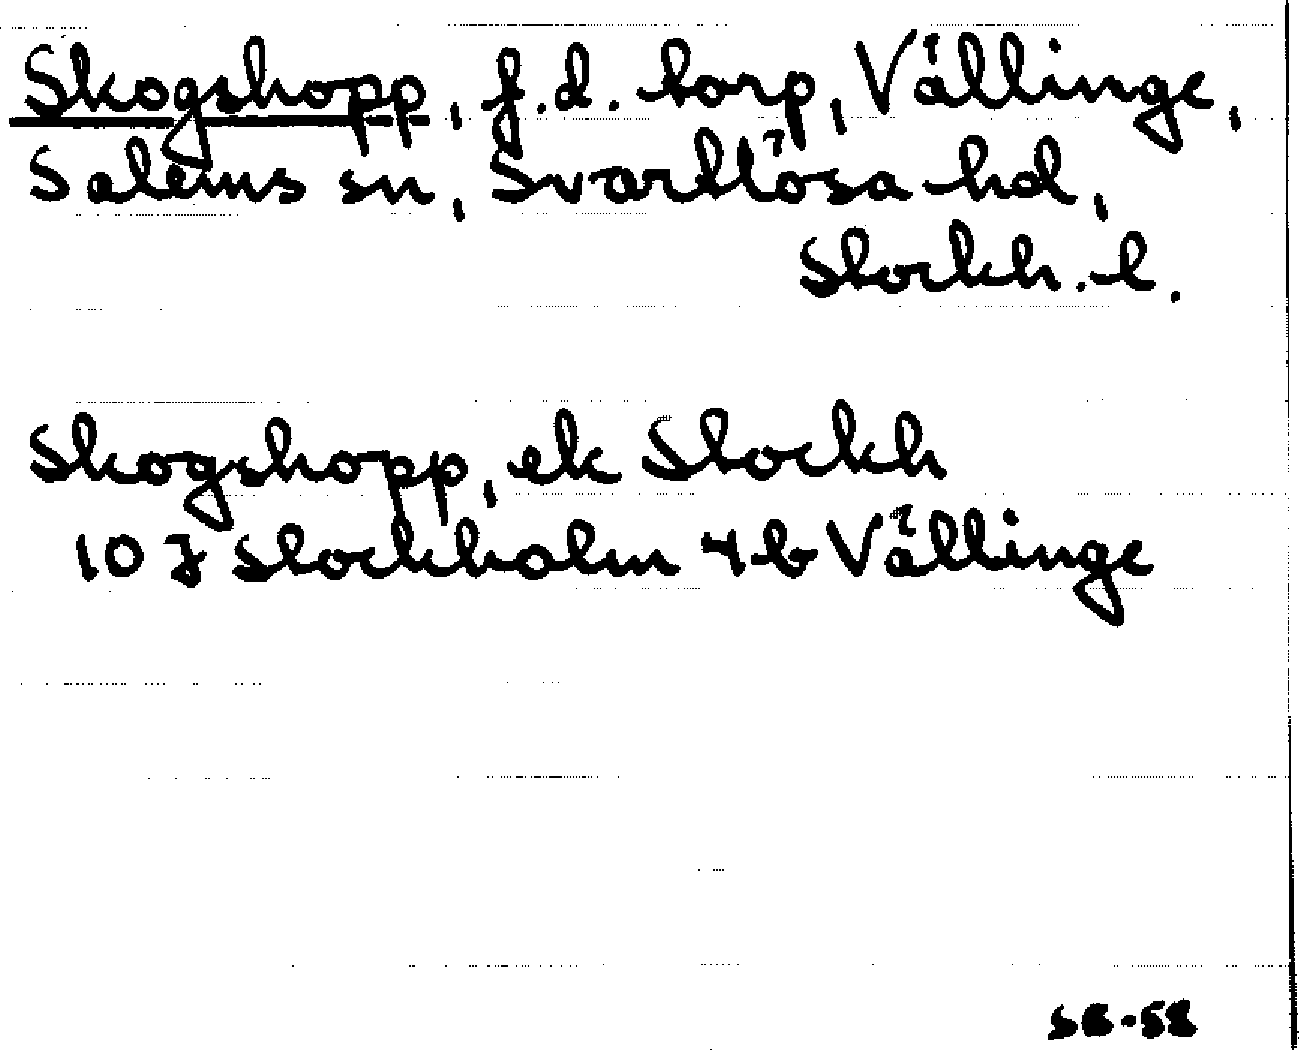 Skogshopp, f.d. torp, Vällinge,
Salems sn, Svartlösa hd,
Stockh. l.
Skogshopp, ek Stockh
10 J Stockholm 4b Vällinge